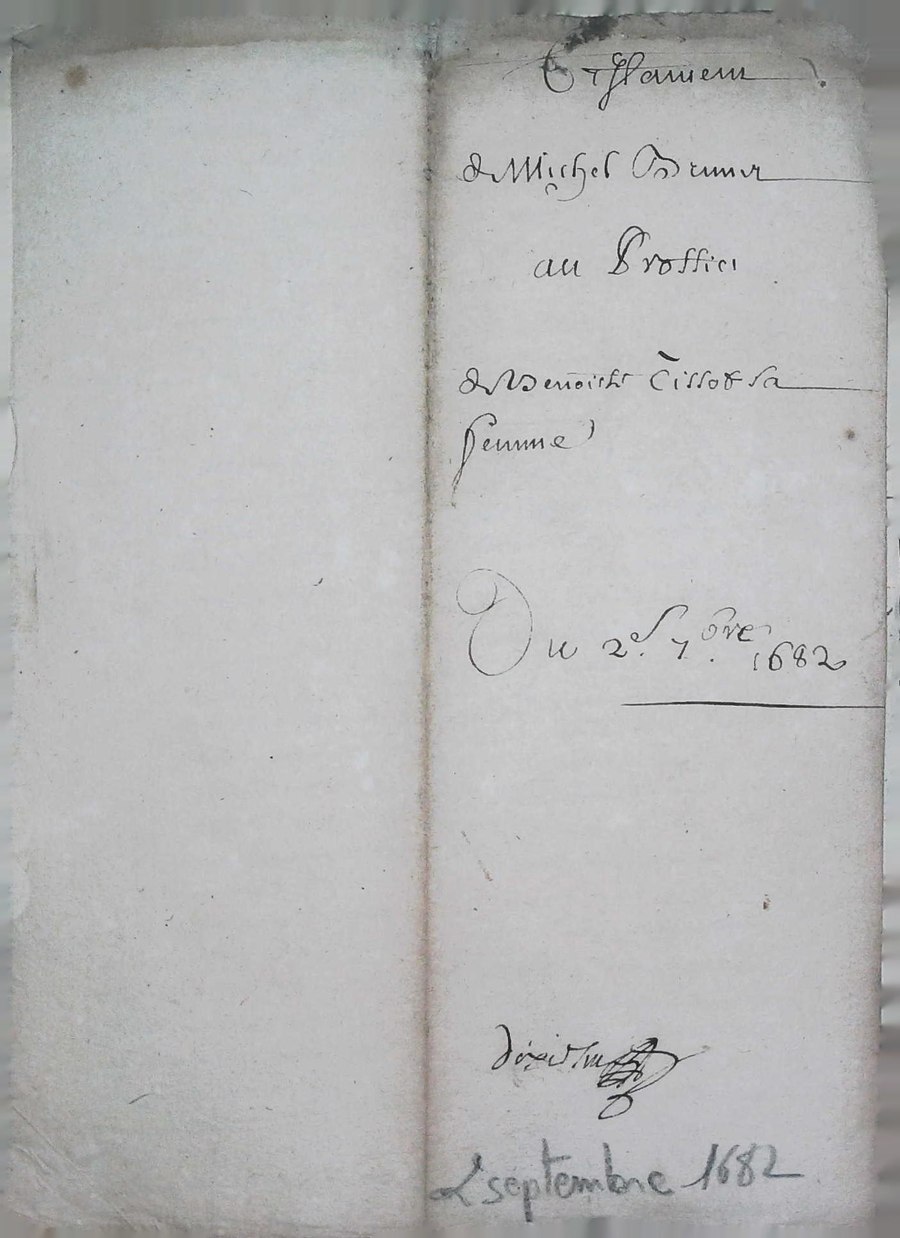 Testament
de Michel Brunet
au Proffict
de Benoiste Tissot sa
femme
Du 2e. 7bre 1682
2 septembre 1682